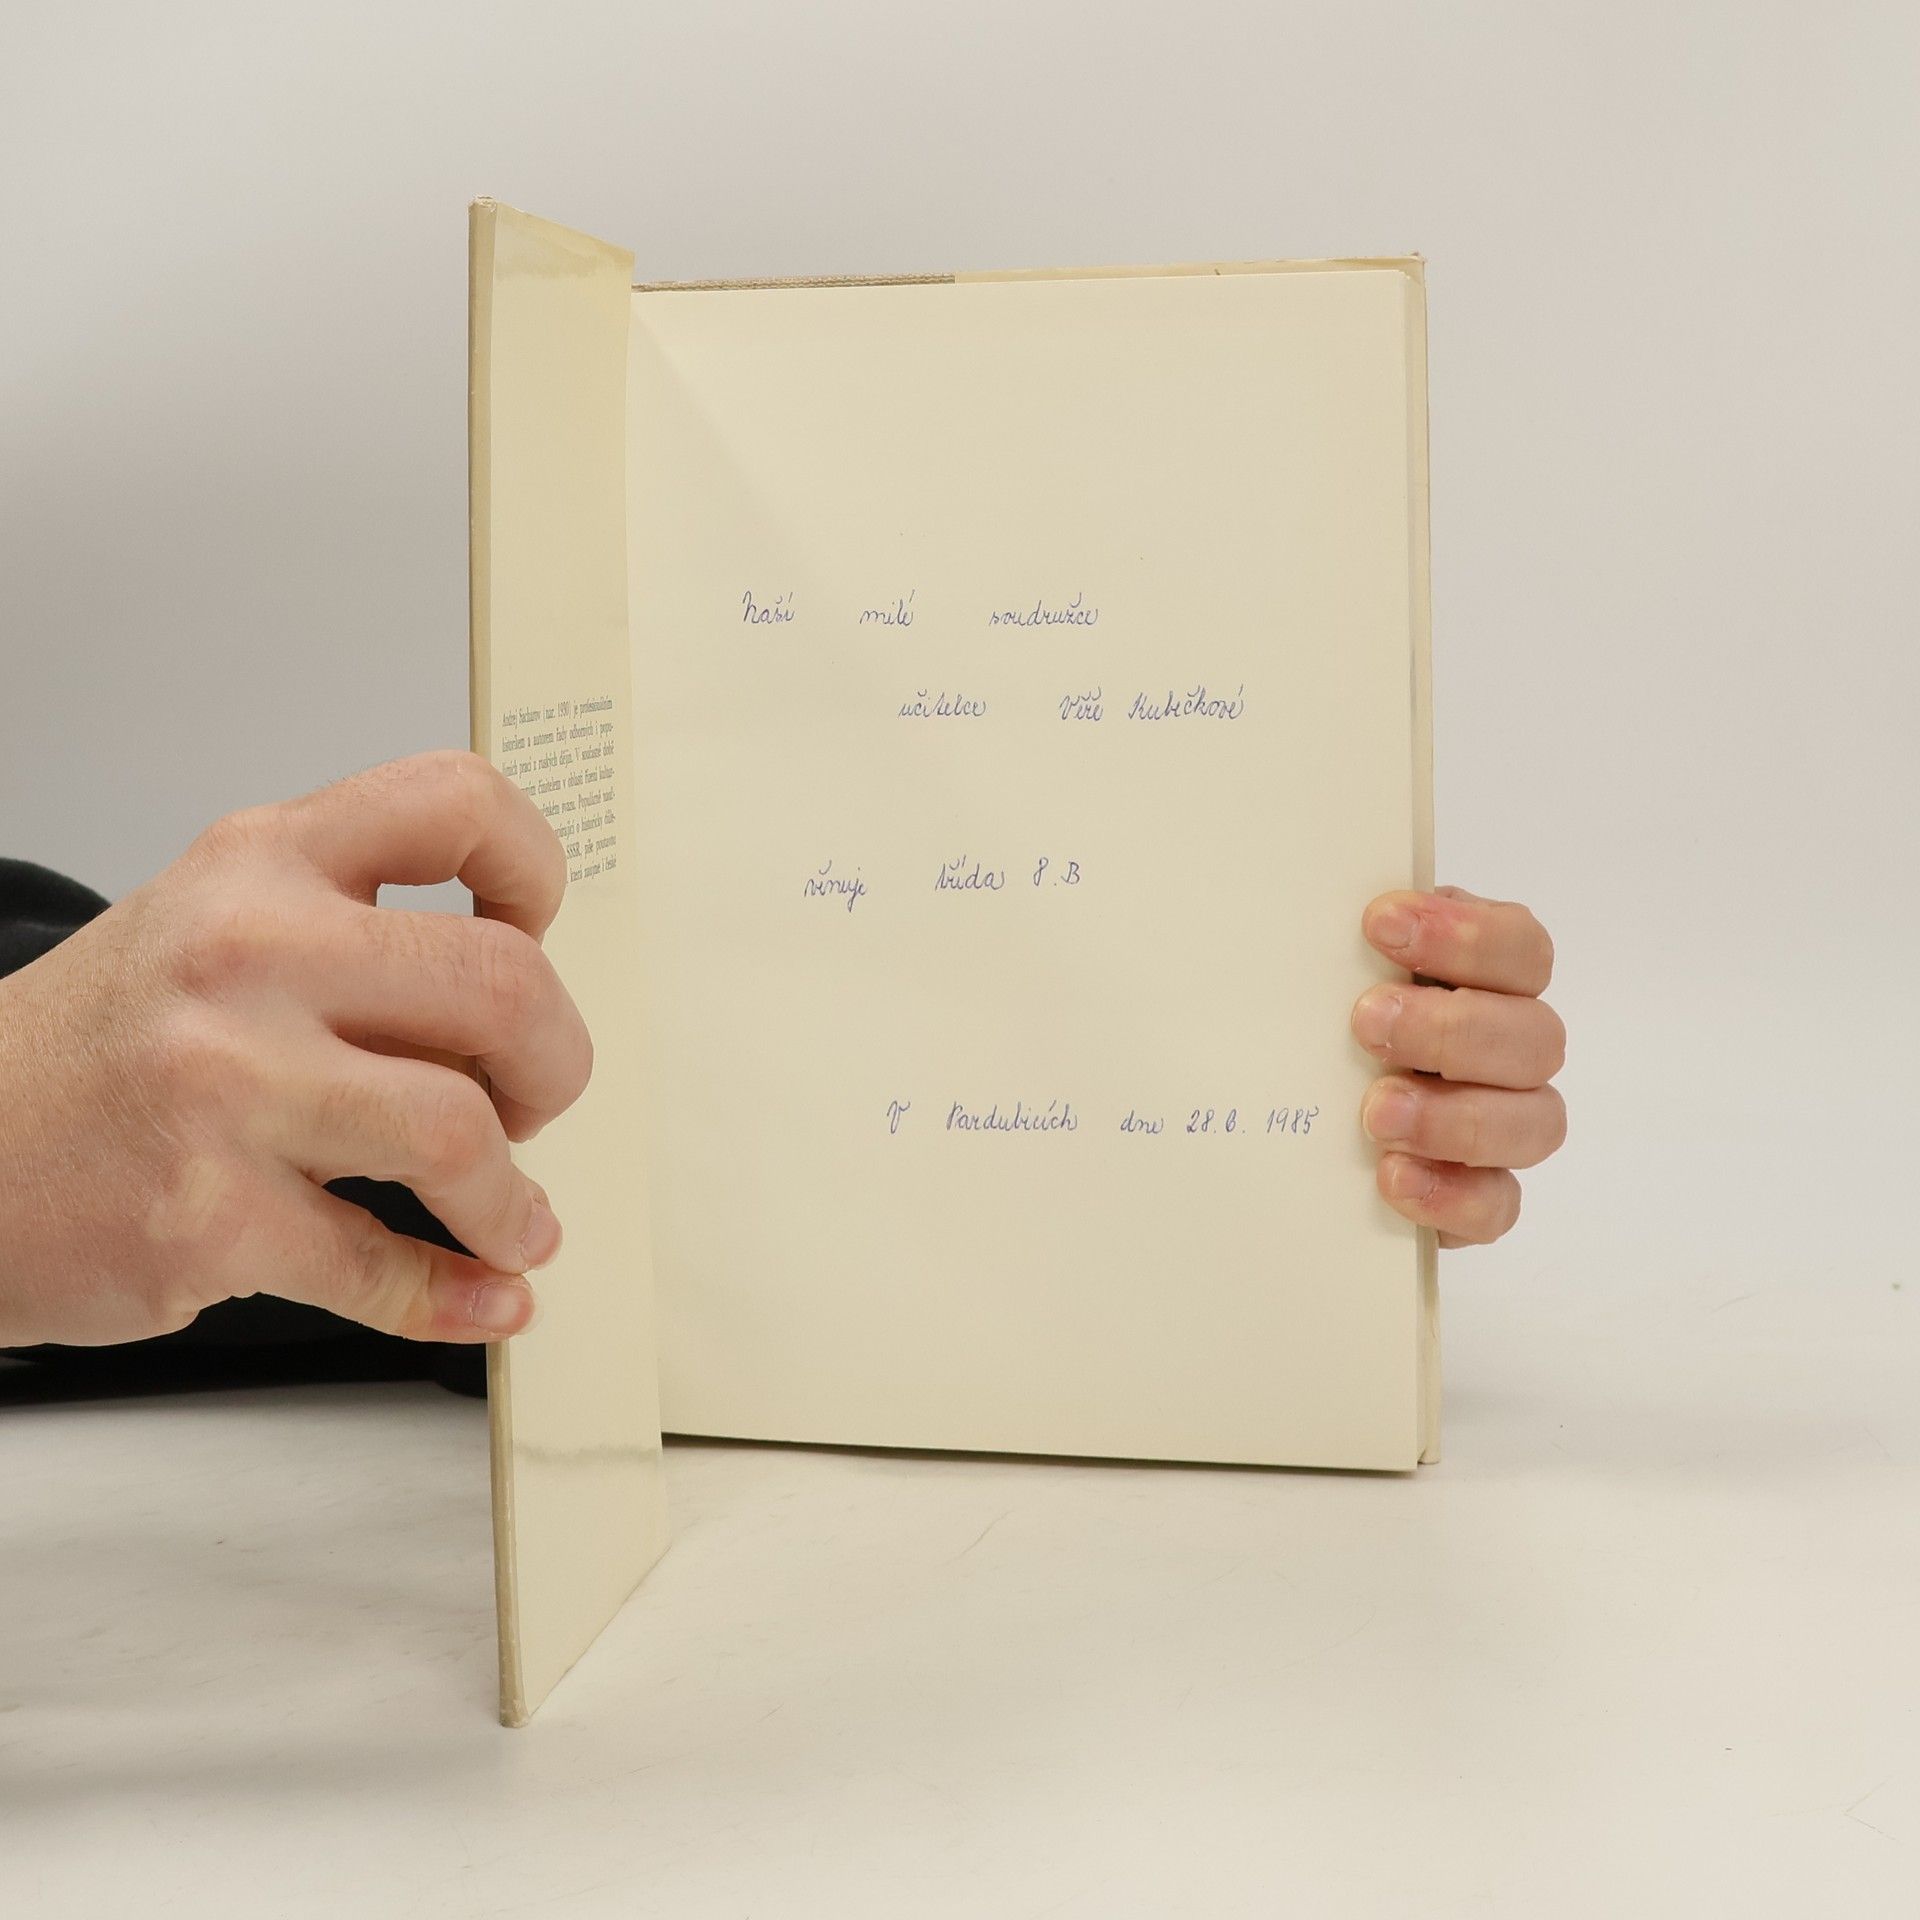 Andrej Sacharov (nar. 1930) je profesionálním
historikem a autorem řady odborných i popu-
lárních prací z ruských dějin. V současné době
činitelem v oblasti řízení kultur-
svazu. Populárně nauč-
o historicky důle-
SSSR, píše poutavou
která zaujme i české
Naší milé soudružce
učitelce Věře Kubíčkové
věnuje třída 8.B
V Pardubicích dne 28.6. 1985